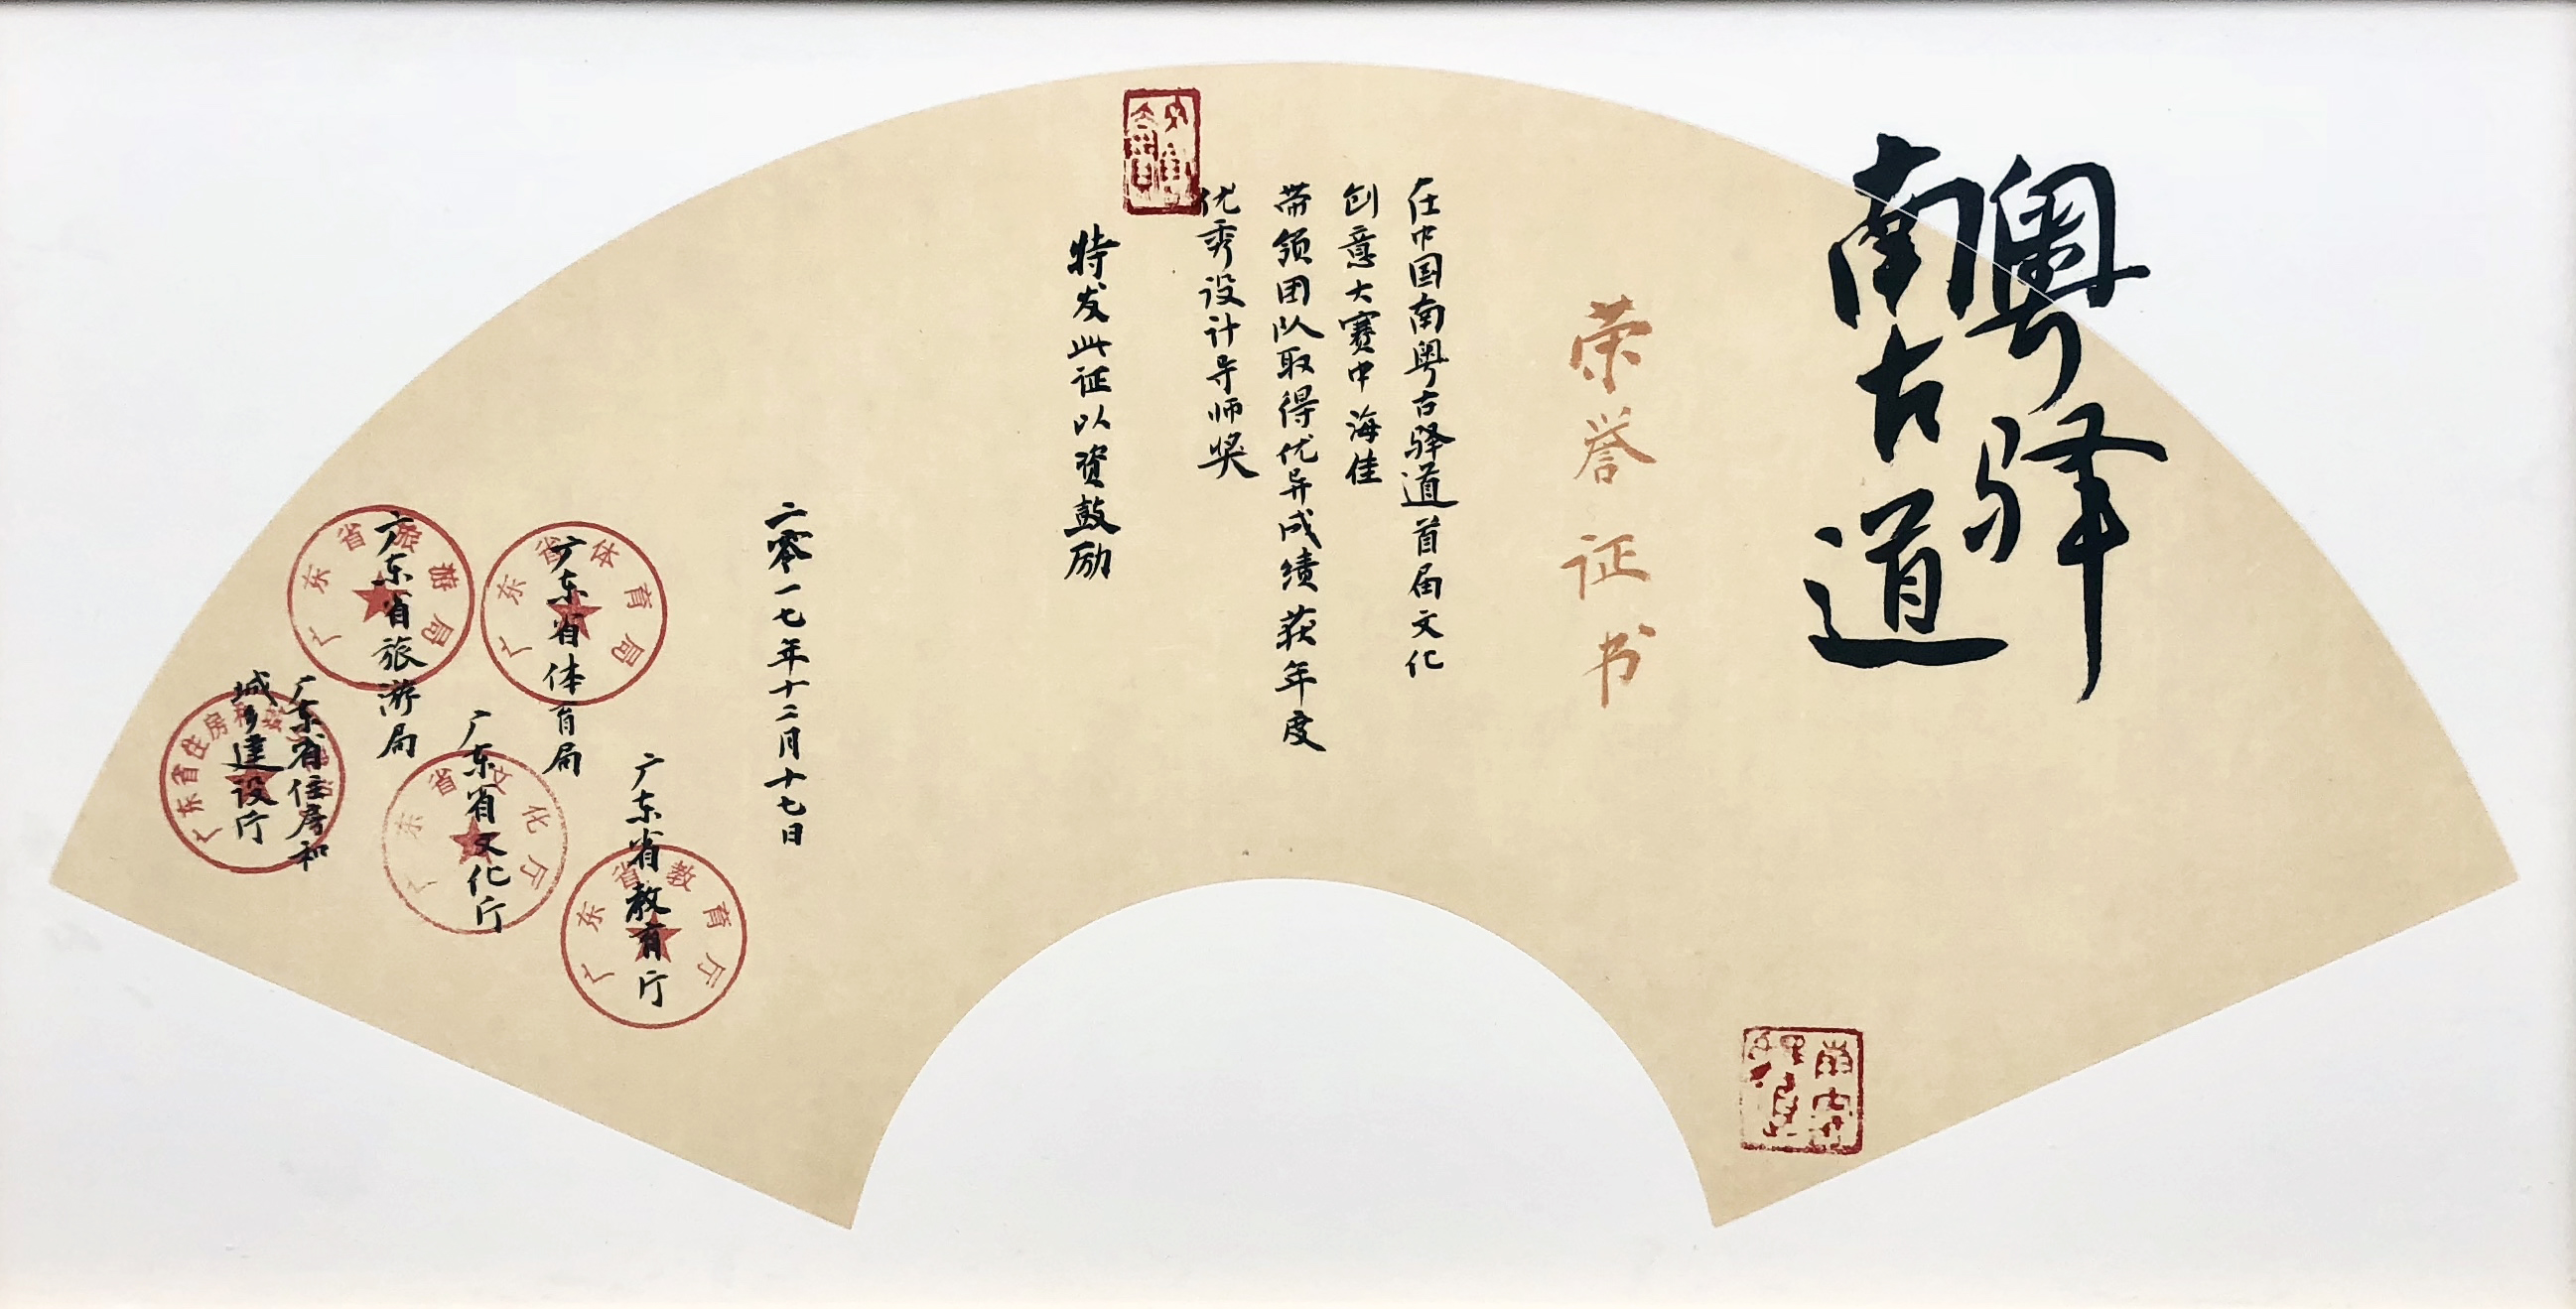 南粤古驿道
荣誉证书
在中国南粤古驿道首届文化
创意大赛中海佳
带领团队取得优异成绩获年度
优秀设计导师奖
特发此证以资鼓励
二零一七年十二月十七日
广东省教育厅
广东省体育局
广东省文化厅
广东省旅游局
广东省住房和
城乡建设厅
广东省教育厅
广东省体育局
广东省文化厅
广东省旅游局